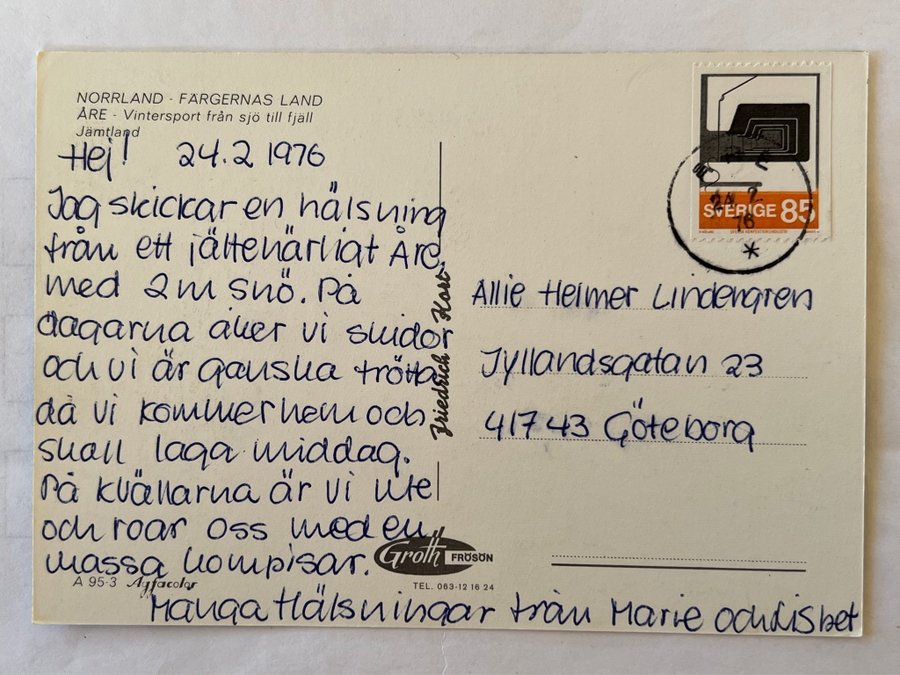 NORRLAND - FÄRGERNAS LAND
ÅRE - Vintersport från sjö till fjäll
Jämtland
Hej! 24.2 1976
Jag skickar en hälsning
från ett jättehärligt Åre.
med 2m snö. På
dagarna åker vi skidor
och vi är ganska trötta
då vi kommer hem och
skall laga middag.
På kvällarna är vi ute
och roar oss med en
massa kompisar.
Många Hälsningar från Marie och Lisbet
Friedrich Kort
Groth FRÖSÖN
TEL. 063-12 16 24
A 95-3 Agfacolor
SVERIGE 85
24 2
76
Allie Helmer Lindengren
Jyllandsgatan 23
417 43 Göteborg